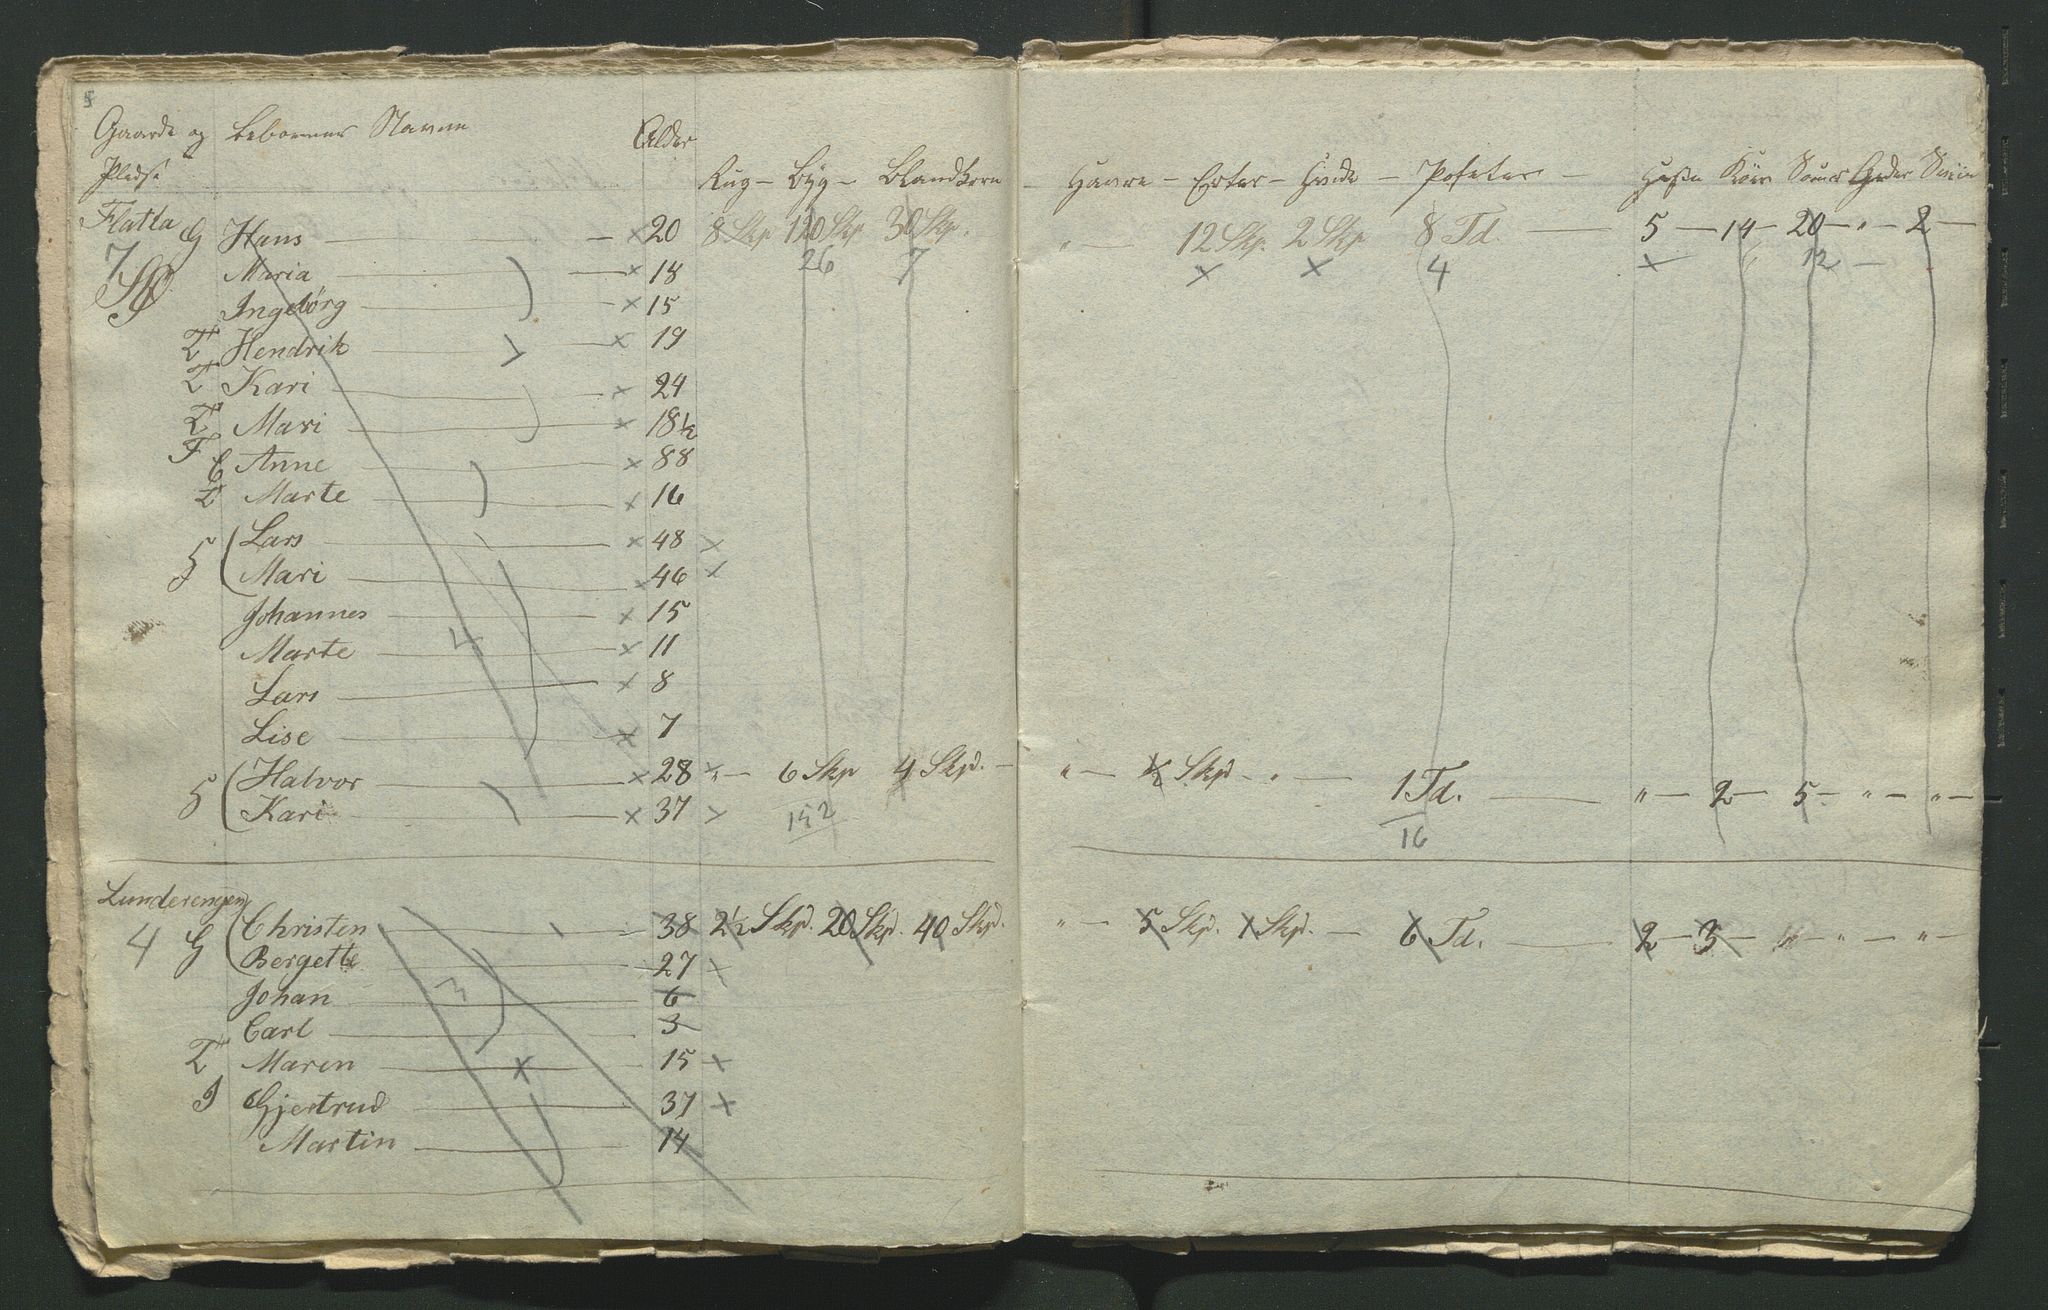 Gaarde og Beboernes Navne Alder
Pladse Rug - Byg - Blandkorn - Havre - Erter - Hvede - Poteter - Heste Kiør Souer Geder Sviin
Flatla G Hans 20 8 Skp 120 Skp 30 Skp. " 12 Skp. 2 Skp 8 Td. 5 - 14 - 20 - " - 2 -
7 Maria x 18 26 7 x x 4 x 12
Ingebörg x 15
T Hendrik x 19
T Kari x 24
T Mari x 18½
F E Anne x 88
T Marte x 16
H Lars x 48 x
Mari x 46 x
Johannes x 15
Marte x 11
Lars x 8
Lise x 7
H Halvor x 28 x " - 6 Skp 4 Skp. - " - ½ Skp - " - 1 Td. " - 2 - 5 - " - " -
Kari x 37 x 152 16
Lunderengen
4 G Christen 38 2½ Skp. 20 Skp. 40 Skp. " - 5 Skp. 1 Skp. - 6 Td. 2 - 3 - " - " - " -
Bergette 27 x
Johan 6
3
Carl 3
T Maren x 15 x
I Gjertrud 37 x
Martin 14